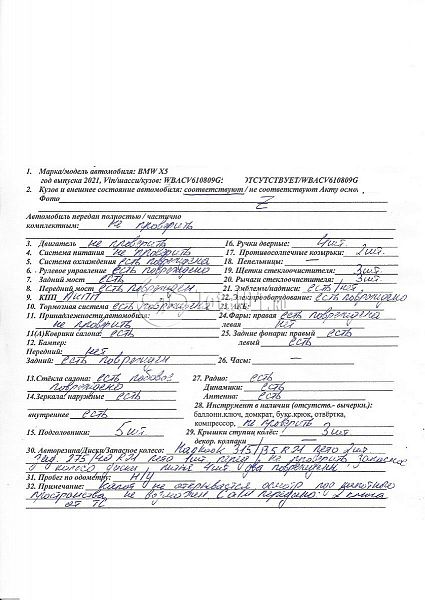 1. Марка/модель автомобиля: BMW X5
год выпуска 2021, Vin/шасси/кузов: WBACV610809G ОТСУТСТВУЕТ/WBACV610809G
2. Кузов и внешнее состояние автомобиля: соответствуют / не соответствуют Акту осмо
Фото
Автомобиль передан полностью / частично
комплектным: не провFрить
3. Двигатель не проверить
4. Система питания не проверить
5. Система охлаждения есть повреждена
6. Рулевое управление есть повреждено
7. Задний мост есть
8. Передний мост есть поврежден
9. КПП АКПП
10. Тормозная система есть повреждена
11. Принадлежности автомобиля:
не проверить
11(А)Коврики салона: есть
12. Бампер:
Передний: нет
Задний: есть поврежден
13.Стёкла салона: есть
повреждено
14.Зеркала: наружные есть
внутреннее есть
15. Подголовники: 5 шт.
16. Ручки дверные: 4 шт.
17. Противосолнечные козырьки: 2 шт.
18. Пепельницы: —
19. Щетки стеклоочистителя: 3 шт.
20. Рычаги стеклоочистителя: 3 шт.
21. Эмблемы/надписи: есть/нет
22. Электрооборудование: есть повреждено
24.Фары: правая есть повреждена
левая нет
25. Задние фонари: правый есть
левый есть
26. Часы: —
27. Радио: есть
Динамики: есть
Антенно: есть
28. Инструмент в наличии (отсутств.- вычерки.):
баллонн.ключ, домкрат, букс.крюк, отвёртка,
компрессор, не проверить
29. Крышки ступиц колёс: 3 шт
декор. колпаки —
30. Авторезина/Диски/Запасное колесо: 315/35 R21 лето 2 шт
275/40 R21 лето 1 шт перед не проверить запаска
колесо диски литые 4 шт два поврежден
31. Пробег по одометру: Н/У
32. Примечание: Капот не открывается осмотр под капотного
пространства не возможен Салон передано: 2 ключа
от ТС